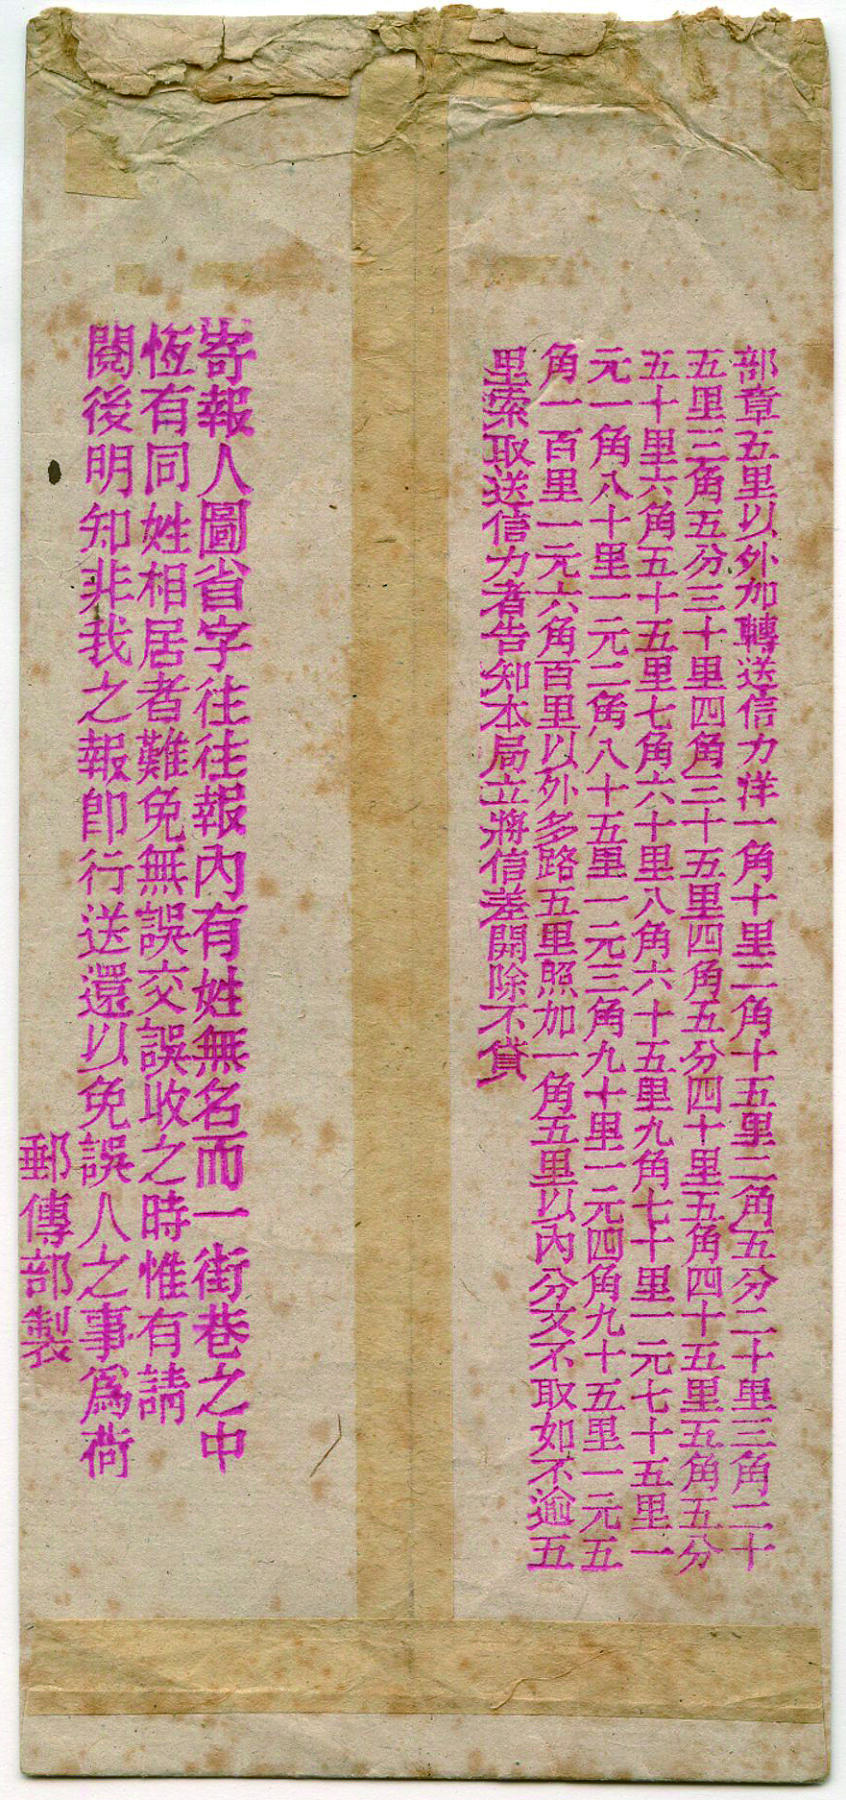 部章五里以外加轉送信力洋一角十里二角十五里二角五分二十里三角二十
五里三角五分三十里四角三十五里四角五分四十里五角四十五里五角五分
五十里六角五十五里七角六十里八角六十五里九角七十里一元七十五里一
元一角八十里一元二角八十五里一元三角九十里一元四角九十五里一元五
角一百里一元六角百里以外多路五里照加一角五里以內分文不取如不逾五
里索取送信力者告知本局立將信差開除不貸
寄報人圖省字往往報內有姓無名而一街巷之中
恆有同姓相居者難免無誤交誤收之時惟有請
閱後明知非我之報即行送還以免誤人之事爲荷
郵傳部製